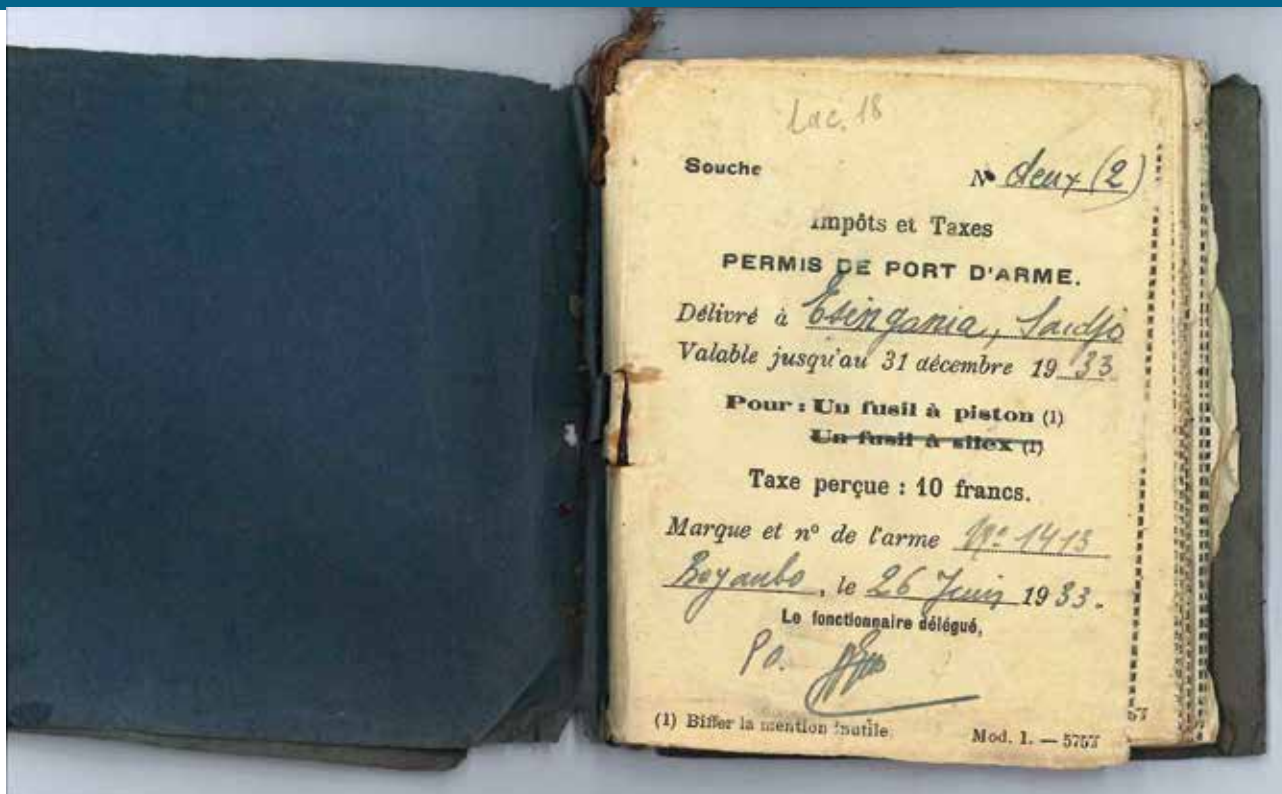 Lac. 18
Souche N° deux (2)
Impôts et Taxes
PERMIS DE PORT D'ARME.
Délivré à Esingania, Saidjo
Valable jusqu'au 31 décembre 1933
Pour : Un fusil à piston (1)
Un fusil à silex (1)
Taxe perçue : 10 francs.
Marque et n° de l'arme N° 1413
, le 26 Juin 1933.
Le fonctionnaire délégué,
Po.
(1) Biffer la mention inutile.
Mod. 1. — 5757
57